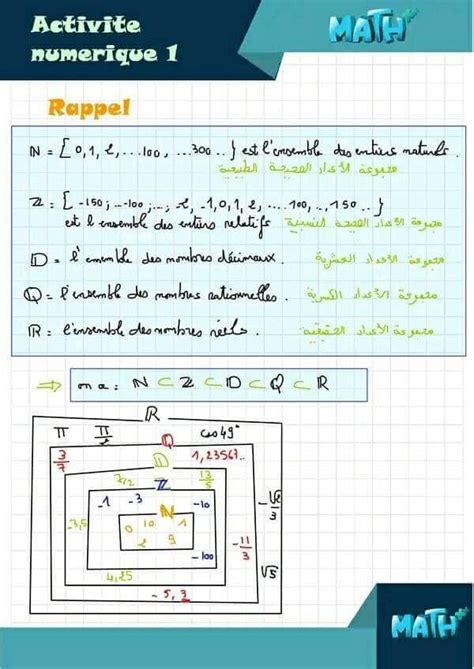 Activite
numerique 1
MATH+
Rappel
N = { 0, 1, 2, ... 100, ... 300 .. } est l'ensemble des entiers naturels.
مجموعة الأعداد الصحيحة الطبيعية
Z = { -150; ..-100; ..; -2, -1, 0, 1, 2, .... 100, .., 150 .. }
est l'ensemble des entiers relatifs مجموعة الأعداد الصحيحة النسبية
D = l'ensemble des nombres décimaux. مجموعة الأعداد العشرية
Q = l'ensemble des nombres rationnelles. مجموعة الأعداد الكسرية
R = l'ensemble des nombres réels. مجموعة الأعداد الحقيقية
⇒ on a : N ⊂ Z ⊂ D ⊂ Q ⊂ R
R
π π/2 cos 49°
Q
3/7 1,23567..
D
7/2 13/5
Z
-1 -3 -10
N
0 10 1
2 9
-3,5
-100
-11/3
-√2/3
√5
4,25
-5,3
MATH+